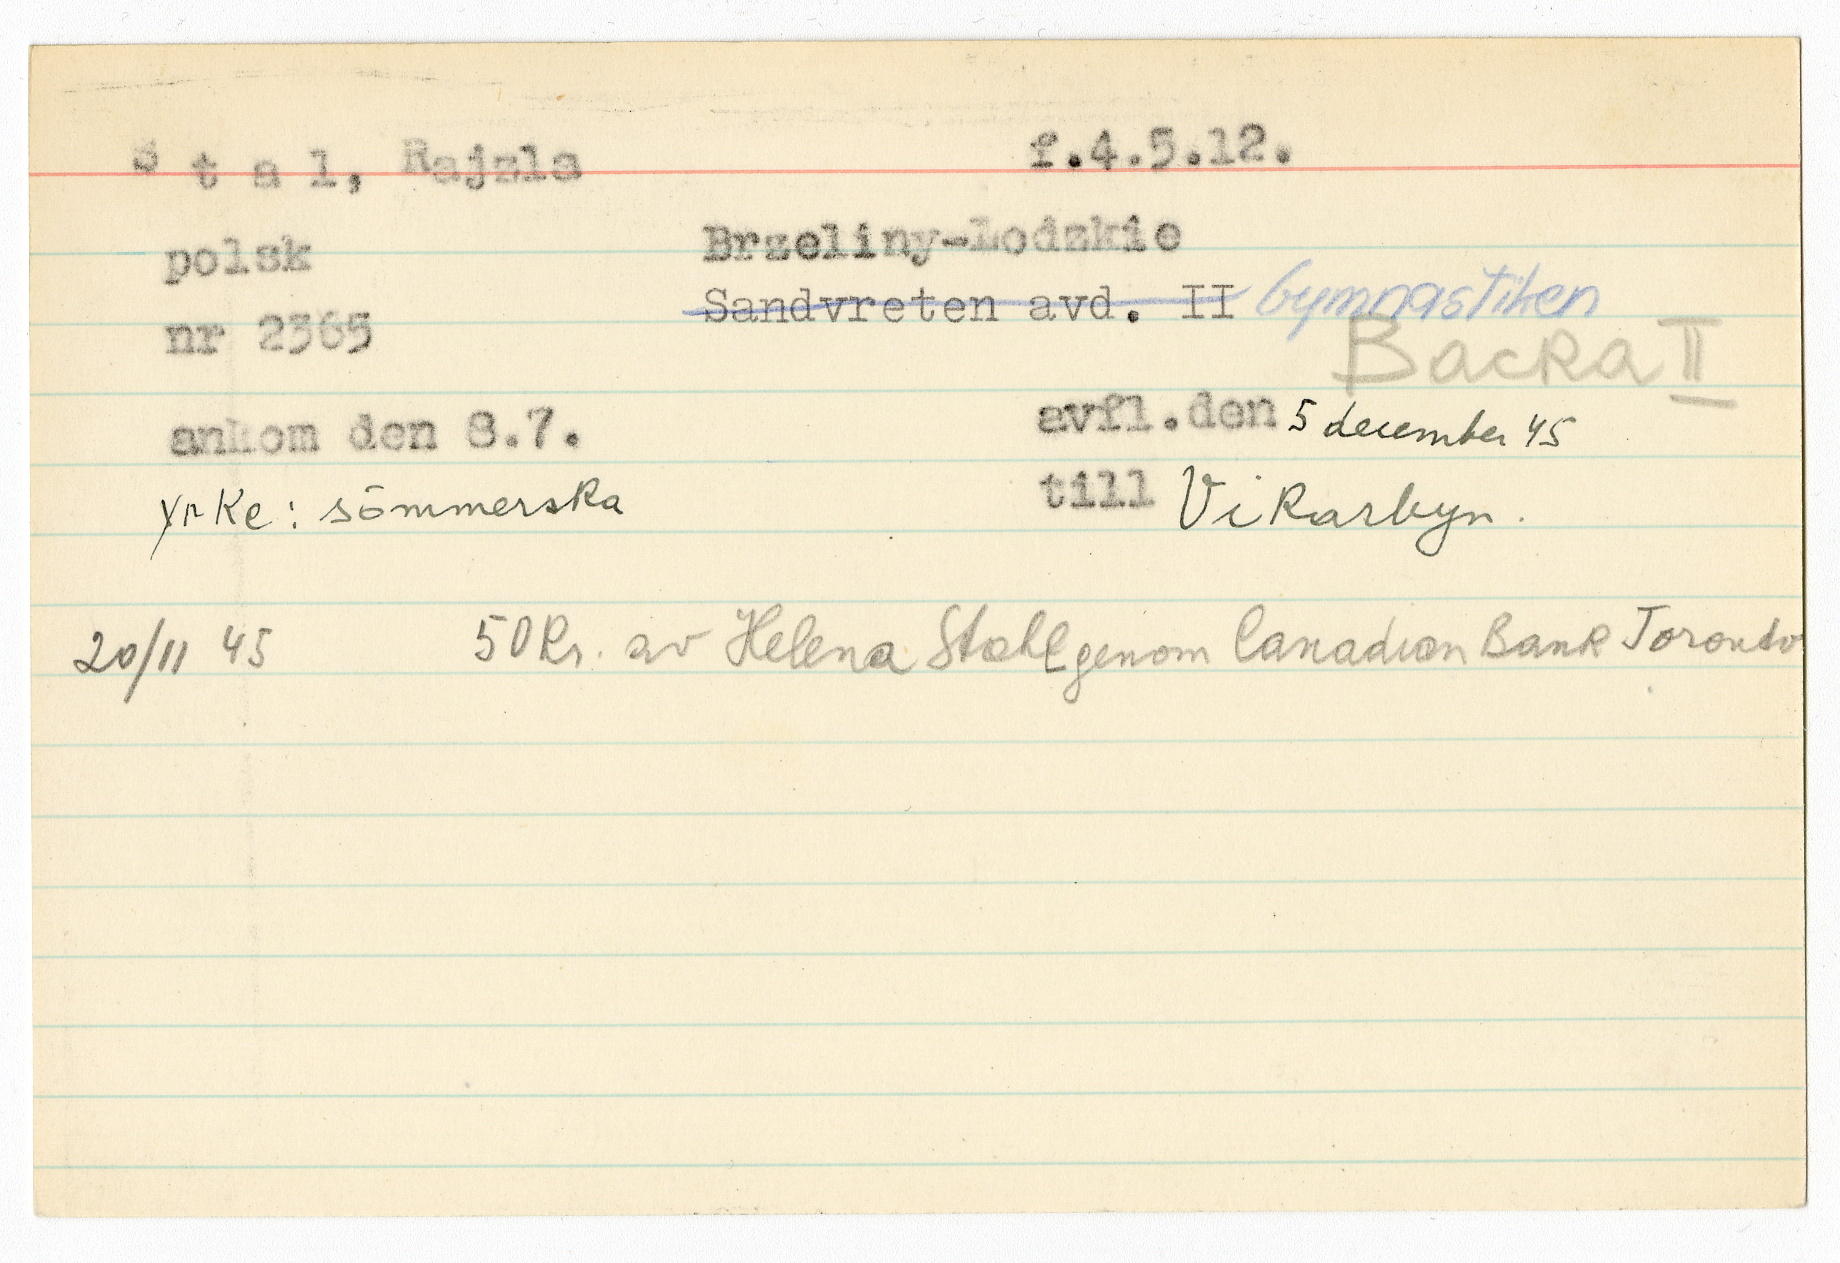 S t a l, Rajzla f.4.5.12.
polsk Brzeliny-Lodzkie
nr 2365 Sandvreten avd. II Gymnastiken
Backa II
ankom den 8.7. avfl.den 5 december 45
yrke: sömmerska till Vikarbyn.
20/11 45 50 Kr. av Helena Stahl genom Canadian Bank Toronto